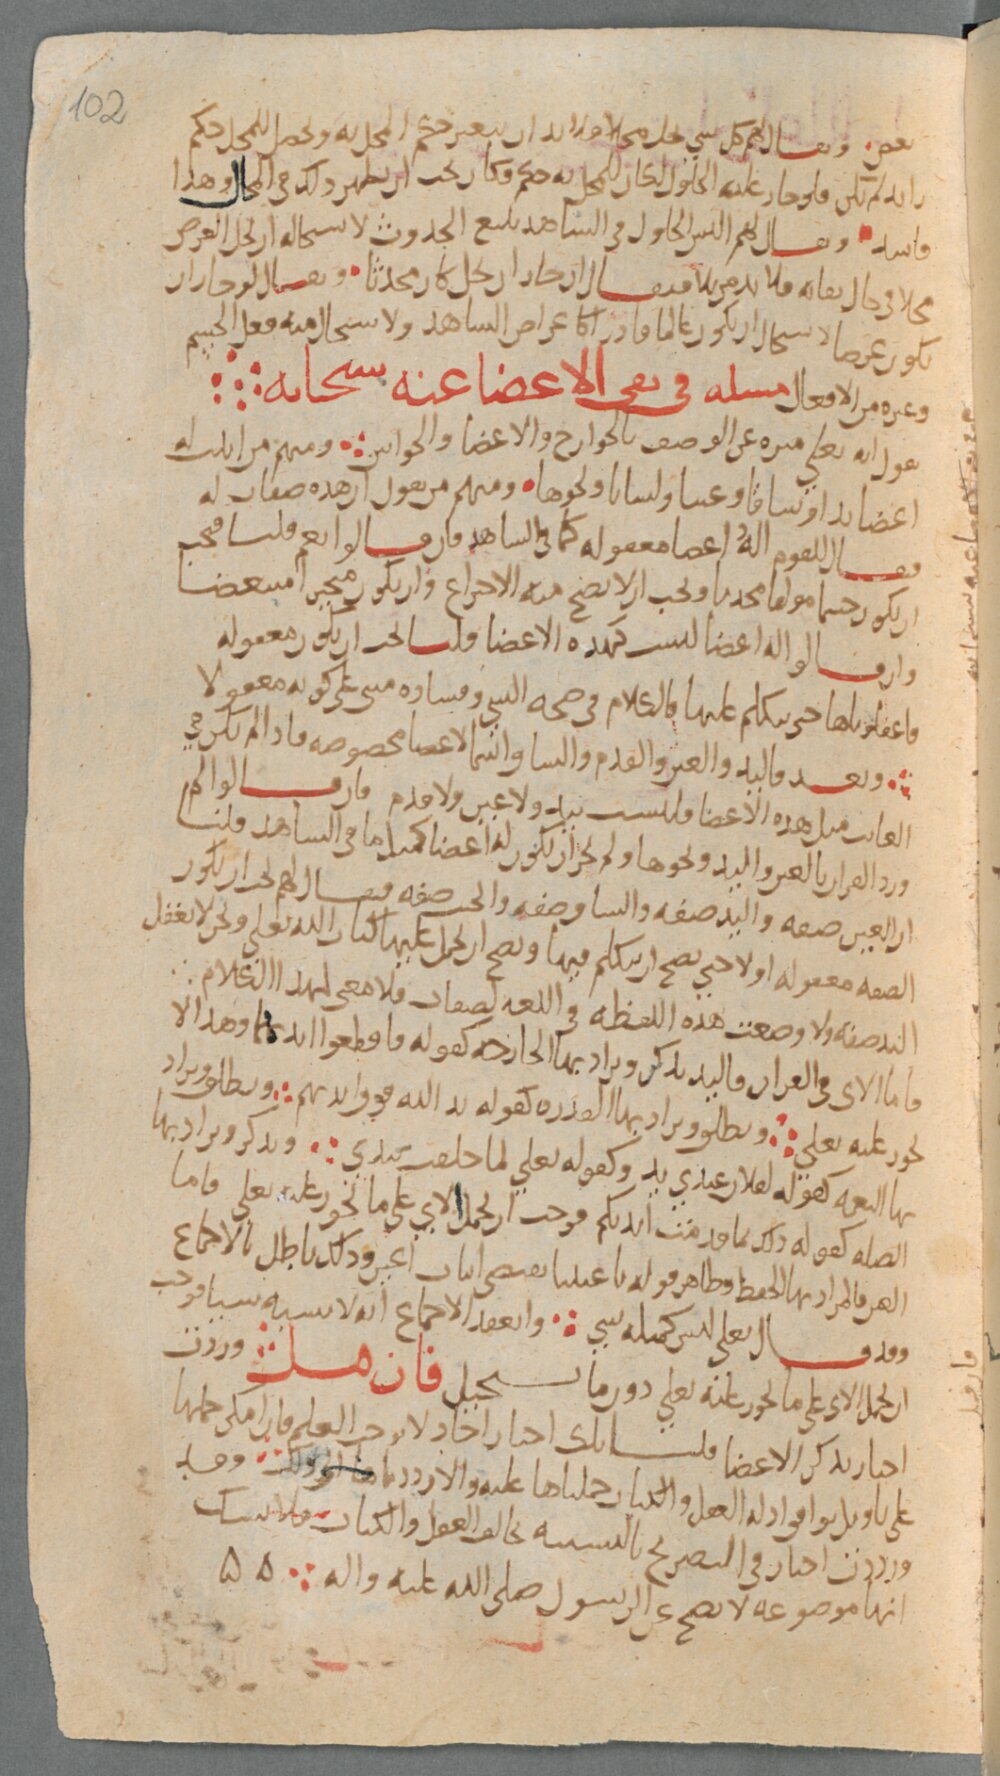 102
بعض ويقال لهم كل شي حل محلا فلا بد ان يتغير حكم المحل به ويحصل للمحل حكم
زايد لم يكن فلو جاز عليه الحلول لكان للمحل به حكم فكان يجب ان يظهر ذلك في المحال وهذا
فاسد ويقال لهم اليس الحلول في الشاهد يتبع الحدوث لاستحالة ان يحل العرض
محلا في حال بقائه فلا بد من بلى فيقال ان جاز ان يحل كان محدثا ويقال لو جاز ان
يكون عرضا لاستحال ان يكون عالما قادرا كاعراض الشاهد ولاستحال منه فعل الجسم
وغيره من الافعال مسله في نفي الاعضا عنه سبحانه
نقول انه تعلي منزه عن الوصف بالجوارح والاعضا والحواس ومنهم من اثبت له
اعضا يدا وساقا وعينا ولسانا ونحوها ومنهم من يقول ان هذه صفات له
فيقال للقوم اله اعضا معقوله كما في الشاهد فان قالوا نعم قلنا فيجب
ان يكون جسما مولفا محدثا ويجب ان لا يصح منه الاختراع وان يكون متجزا متبعضا
وان قالوا له اعضا ليست كهذه الاعضا قلنا يجب ان يكون معقوله
فاعقلوناها حتى نتكلم عليها فالكلام في صحه الشي وفساده مبني على كونه معقولا
وبعد فاليد والعين والقدم والساق اسما لاعضا مخصوصه فاذا لم تكن في
الغايب مثل هذه الاعضا فليست بيد ولا عين ولا قدم فان قالوا لم
ورد القران بالعين واليد ونحوها ولم يجز ان يكون له اعضا كمثل ما في الشاهد قلنا
ان العين صفه واليد صفه والساق صفه والجنب صفه فيقال لهم يجب ان يكون
الصفه معقوله اولا حتى يصح ان يتكلم فيها ويصح ان يحمل عليها كتاب الله تعلي ونحن لا نعقل
اليد صفه ولا وضعت هذه اللفظه في اللغه لصفات فلا معنى لهذا الكلام
فاما الاي في القران فاليد يذكر ويراد بها الجارحه كقوله فاقطعوا ايديهما وهذا لا
يجوز عليه تعلي ويطلق ويراد بها القدره كقوله يد الله فوق ايديهم ويطلق ويراد
بها النعمه كقوله لفلان عندي يد وكقوله تعلي لما خلقت بيدي ويذكر ويراد بها
الصله كقوله ذلك بما قدمت ايديكم فوجب ان يحمل الاي على ما يجوز عليه تعلي فاما
العين فالمراد بها الحفظ وظاهر قوله باعيننا يقتضي اثبات اعين وذلك باطل بالاجماع
وقد قال تعلي ليس كمثله شي وانعقد الاجماع انه لا يشبه شيا فوجب
ان يحمل الاي على ما يجوز عليه تعلي دون ما يستحيل فان قيل وردت
اخبار بذكر الاعضا قلنا تلك اخبار احاد لا توجب العلم فان امكن حملها
على تاويل يوافق ادله العقل والكتاب حملناها عليه والا رددناها وقد
وردت اخبار في التصريح بالتشبيه يخالف العقل والكتاب فلا نشك
انها موضوعه لا يصح عن الرسول صلى الله عليه واله